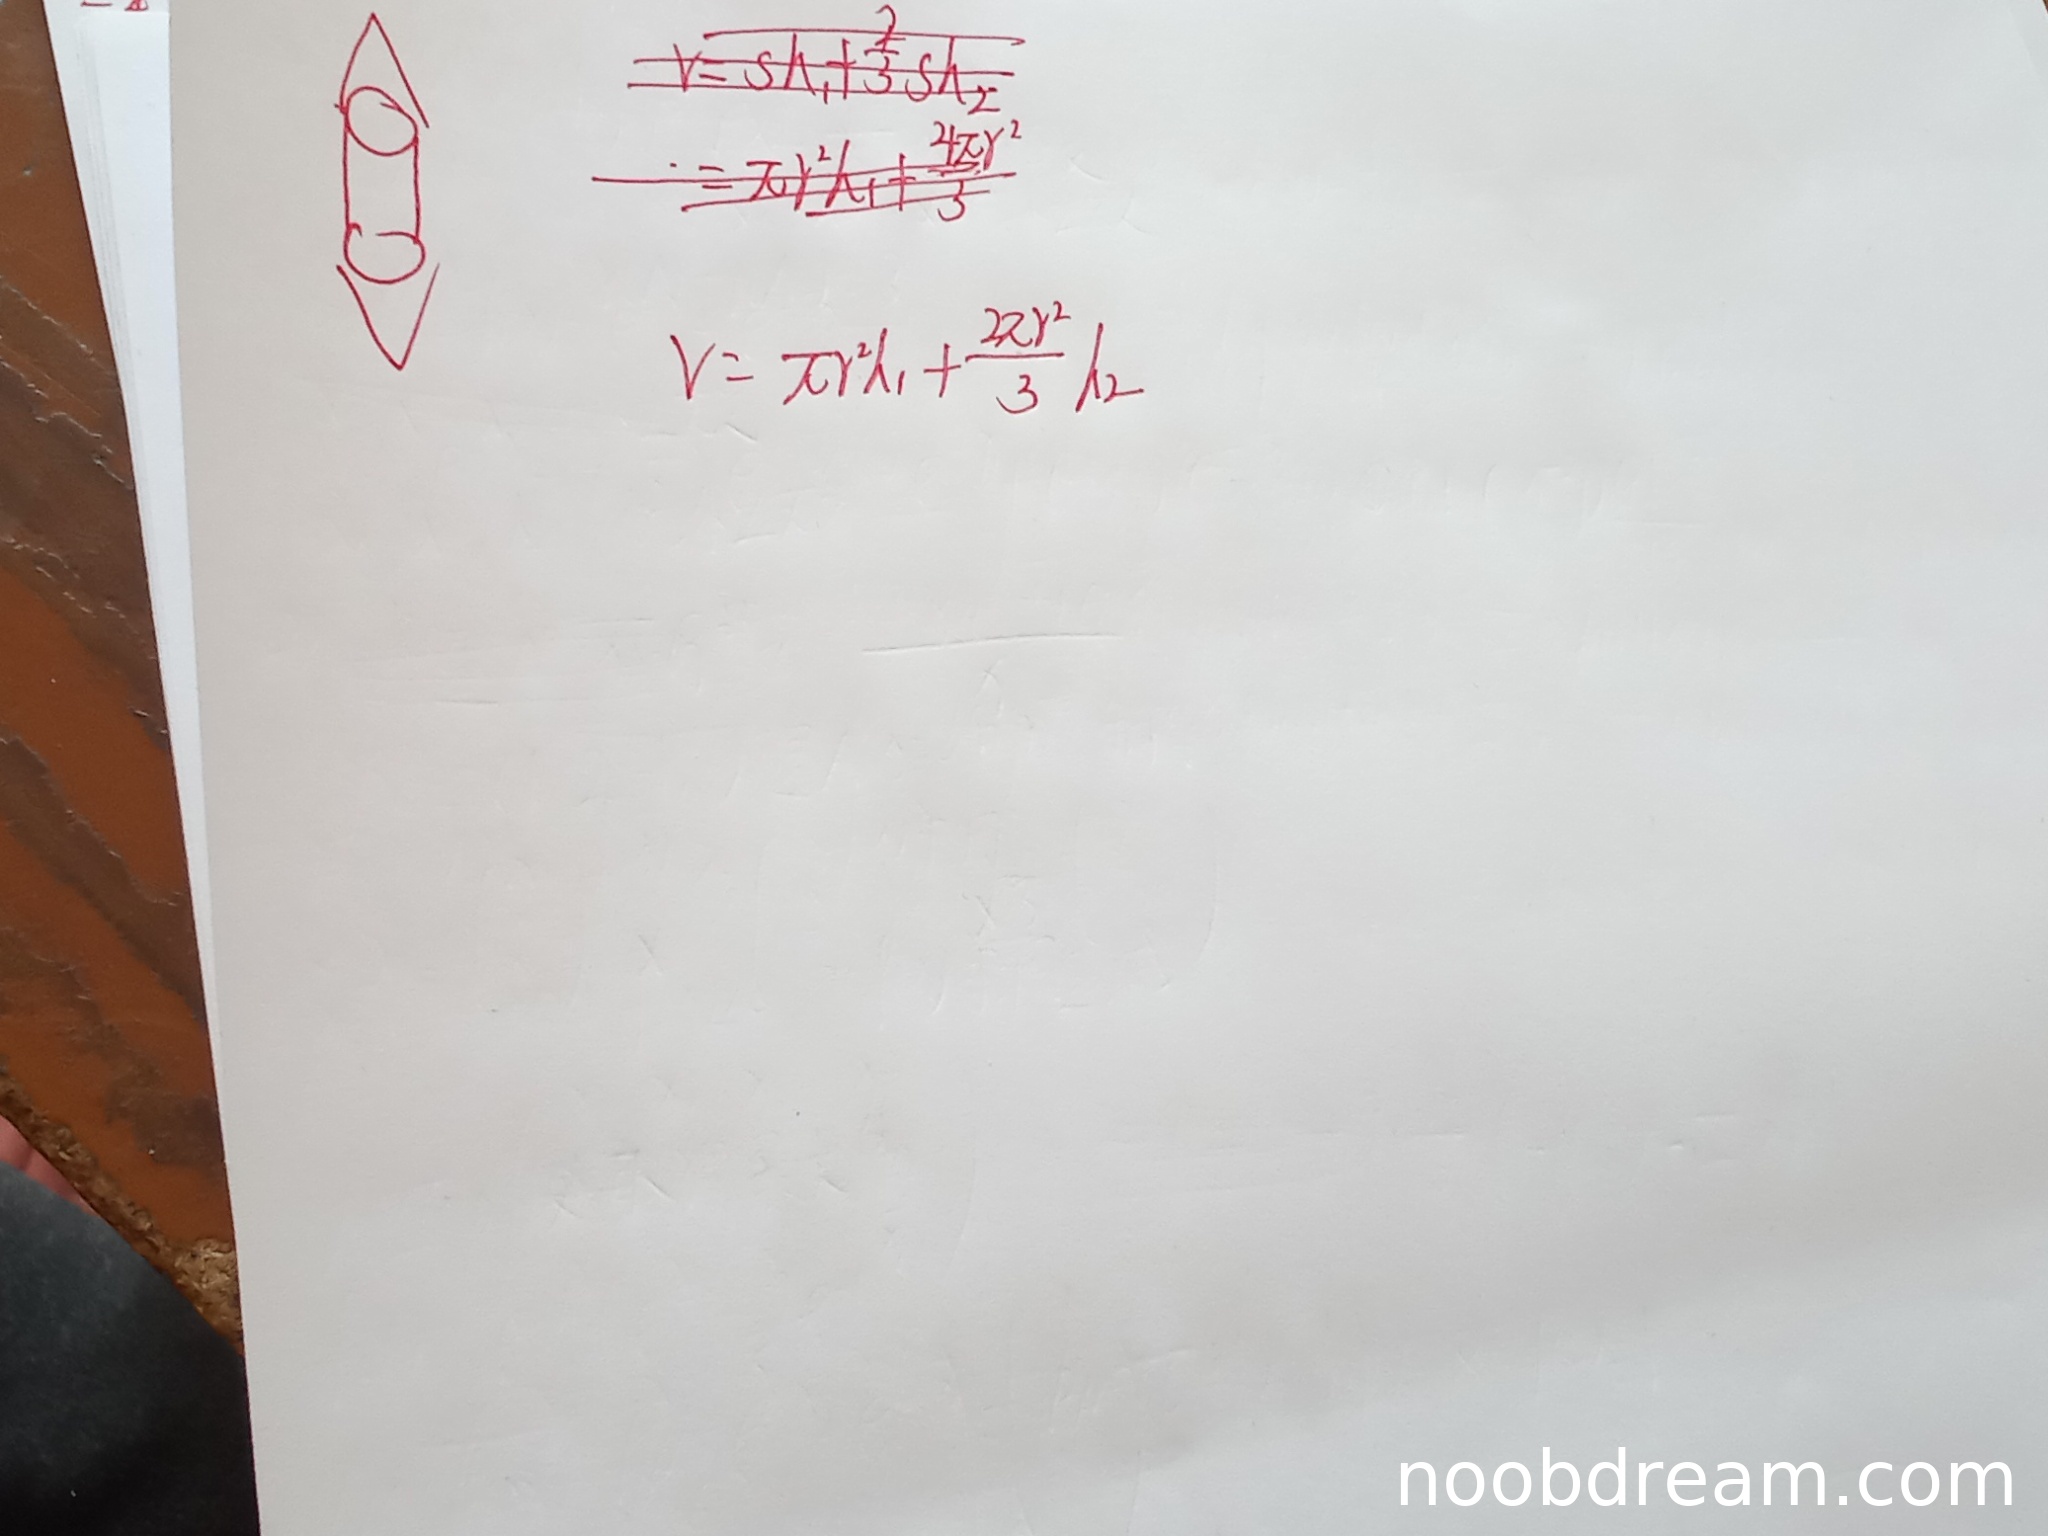 V=sh₁+2/3sh₂
∴=πr²h₁+4πr²/3
V=πr²h₁+2πr²/3 h₂
noobdream.com